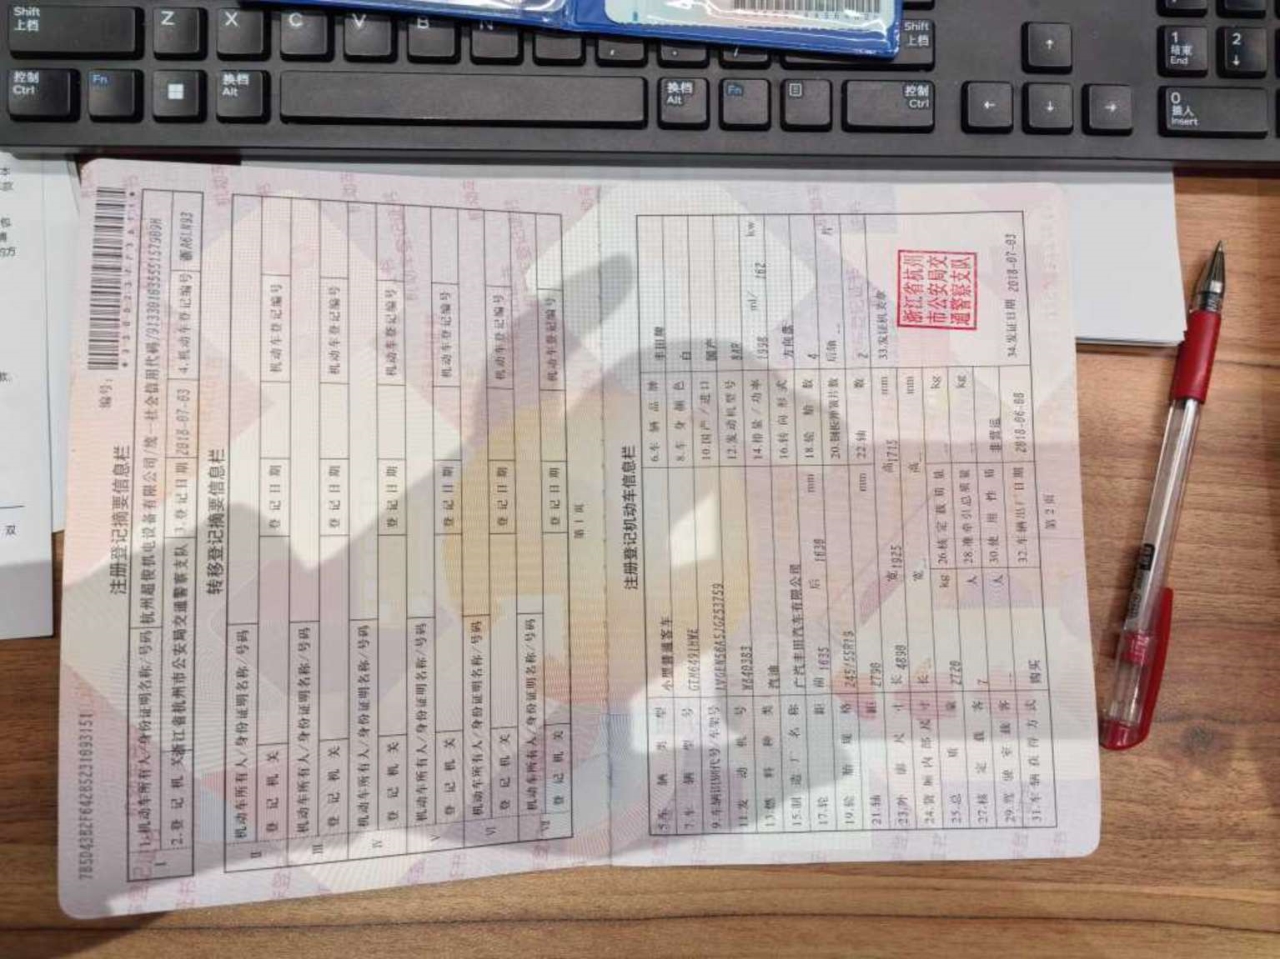 注册登记摘要信息栏
编号:
1.机动车所有人/身份证明名称/号码 杭州超俊机电设备有限公司/统一社会信用代码/
2.登记机关 浙江省杭州市公安局交通警察支队 3.登记日期 2018-07-03 4.机动车登记编号
转移登记摘要信息栏
II 机动车所有人/身份证明名称/号码
登记机关 登记日期 机动车登记编号
III 机动车所有人/身份证明名称/号码
登记机关 登记日期 机动车登记编号
IV 机动车所有人/身份证明名称/号码
登记机关 登记日期 机动车登记编号
V 机动车所有人/身份证明名称/号码
登记机关 登记日期 机动车登记编号
VI 机动车所有人/身份证明名称/号码
登记机关 登记日期 机动车登记编号
VII 机动车所有人/身份证明名称/号码
登记机关 登记日期 机动车登记编号
第1页
注册登记机动车信息栏
5.车辆类型 小型普通客车 6.车辆品牌 丰田牌
7.车辆型号 8.车身颜色 白
9.车辆识别代号/车架号 10.国产/进口 国产
11.发动机号 12.发动机型号 8AR
13.燃料种类 汽油 14.排量/功率 1998 ml/ 162 kw
15.制造厂名称 广汽丰田汽车有限公司 16.转向形式 方向盘
17.轮距 前 1635 后 1630 mm 18.轮胎数 4
19.轮胎规格 245/55R19 20.钢板弹簧片数 后轴 片
21.轴距 2790 mm 22.轴数 2
23.外廓尺寸 长 4890 宽 1925 高 1715 mm
33.发证机关章
浙江省杭州
市公安局交
通警察支队
24.货厢内部尺寸 长 宽 高 mm
25.总质量 2720 kg 26.核定载质量 kg
27.核定载客 7 人 28.准牵引总质量 kg
29.驾驶室载客 人 30.使用性质 非营运
31.车辆获得方式 购买 32.车辆出厂日期 2018-06-08 34.发证日期 2018-07-03
第2页
Shift
上档
Z
X
C
V
B
N
Shift
上档
1
结束
End
2
控制
Ctrl
Fn
换档
Alt
换档
Alt
Fn
控制
Ctrl
0
插入
Insert